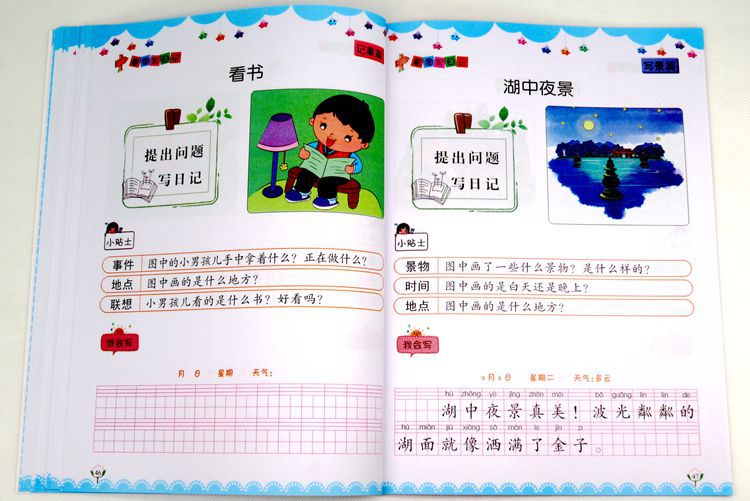 记事篇
看书
提出问题
写日记
小贴士
事件 图中的小男孩儿手中拿着什么？正在做什么？
地点 图中画的是什么地方？
联想 小男孩儿看的是什么书？好看吗？
我会写
月 日 星期 天气：
46
写景篇
湖中夜景
提出问题
写日记
小贴士
景物 图中画了一些什么景物？是什么样的？
时间 图中画的是白天还是晚上？
地点 图中画的是什么地方？
我会写
月 日 星期二 天气：多云
hú zhōng yè jǐng zhēn měi bō guāng lín lín de
湖中夜景真美！波光粼粼的
hú miàn jiù xiàng sǎ mǎn le jīn zi
湖面就像洒满了金子。
47